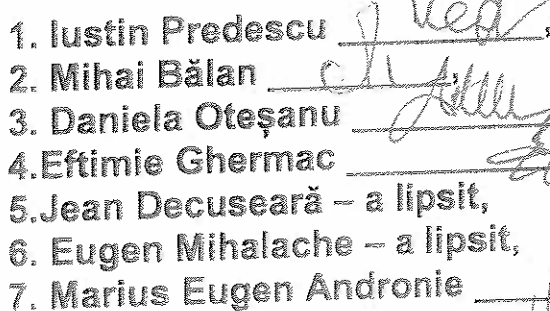 1. Iustin Predescu
2. Mihai Bălan
3. Daniela Oteșanu
4.Eftimie Ghermac
5.Jean Decuseară – a lipsit,
6. Eugen Mihalache – a lipsit,
7. Marius Eugen Andronie